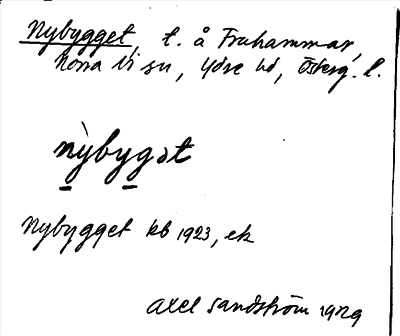 Nybygget, t. å Fruhammar,
Norra Vi sn, Ydre hd, Österg. l.
nỳbygət
Nybygget kb 1923, ek
Axel Sandström 1929